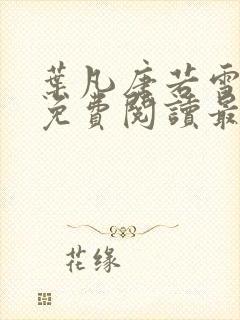 葉凡唐若雪
免費閱讀最
花缘